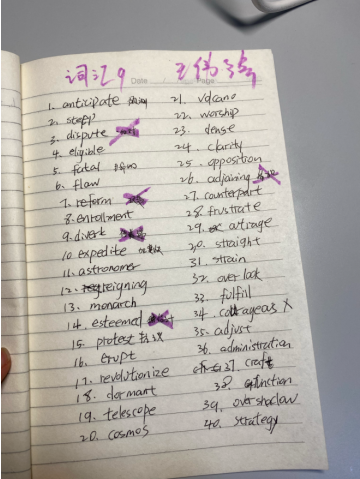 词汇9
Date
Page
1. anticipate
2. steep
3. dispute
4. eligible
5. fatal
6. flaw
7. reform
8. enrollment
9. divert
10. expedite
11. astronomer
12. reigning
13. monarch
14. esteemed
15. protest 抗议
16. erupt
17. revolutionize
18. dormant
19. telescope
20. cosmos
21. volcano
22. worship
23. dense
24. clarity
25. opposition
26. adjoining
27. counterpart
28. frustrate
29. outrage
30. straight
31. strain
32. overlook
33. fulfil
34. courageous X
35. adjust
36. administration
37. craft
38. function
39. overshadow
40. strategy